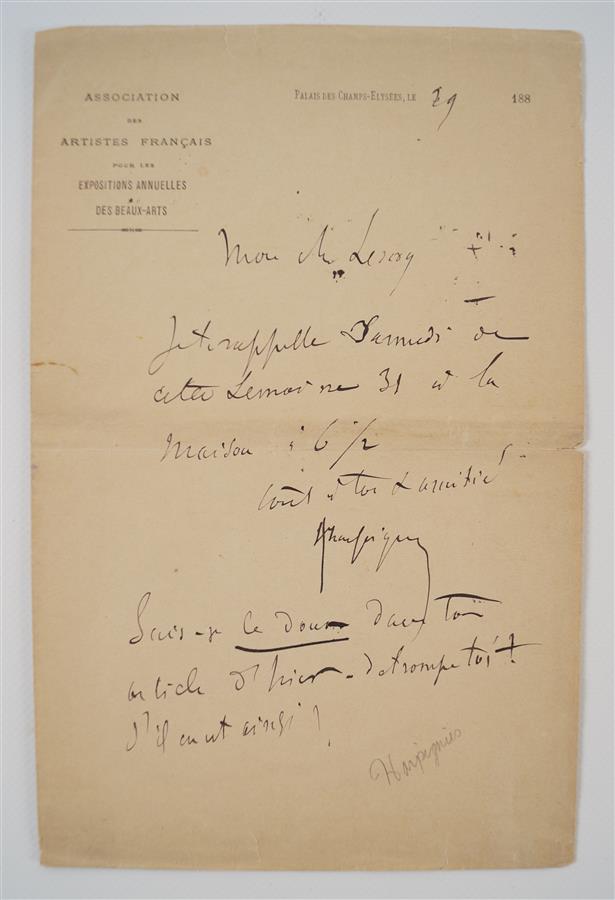 ASSOCIATION
DES
ARTISTES FRANÇAIS
POUR LES
EXPOSITIONS ANNUELLES
DES BEAUX-ARTS
PALAIS DES CHAMPS-ELYSÉES, LE 29 188
Mon cher
Je te rappelle Samedi de
cette Semaine 31 à la
maison à 6 1/2
tout à toi d'amitié
Harpignies
Suis-je le dans ton
article d'hier - détrompe toi
s'il en est ainsi !
Harpignies